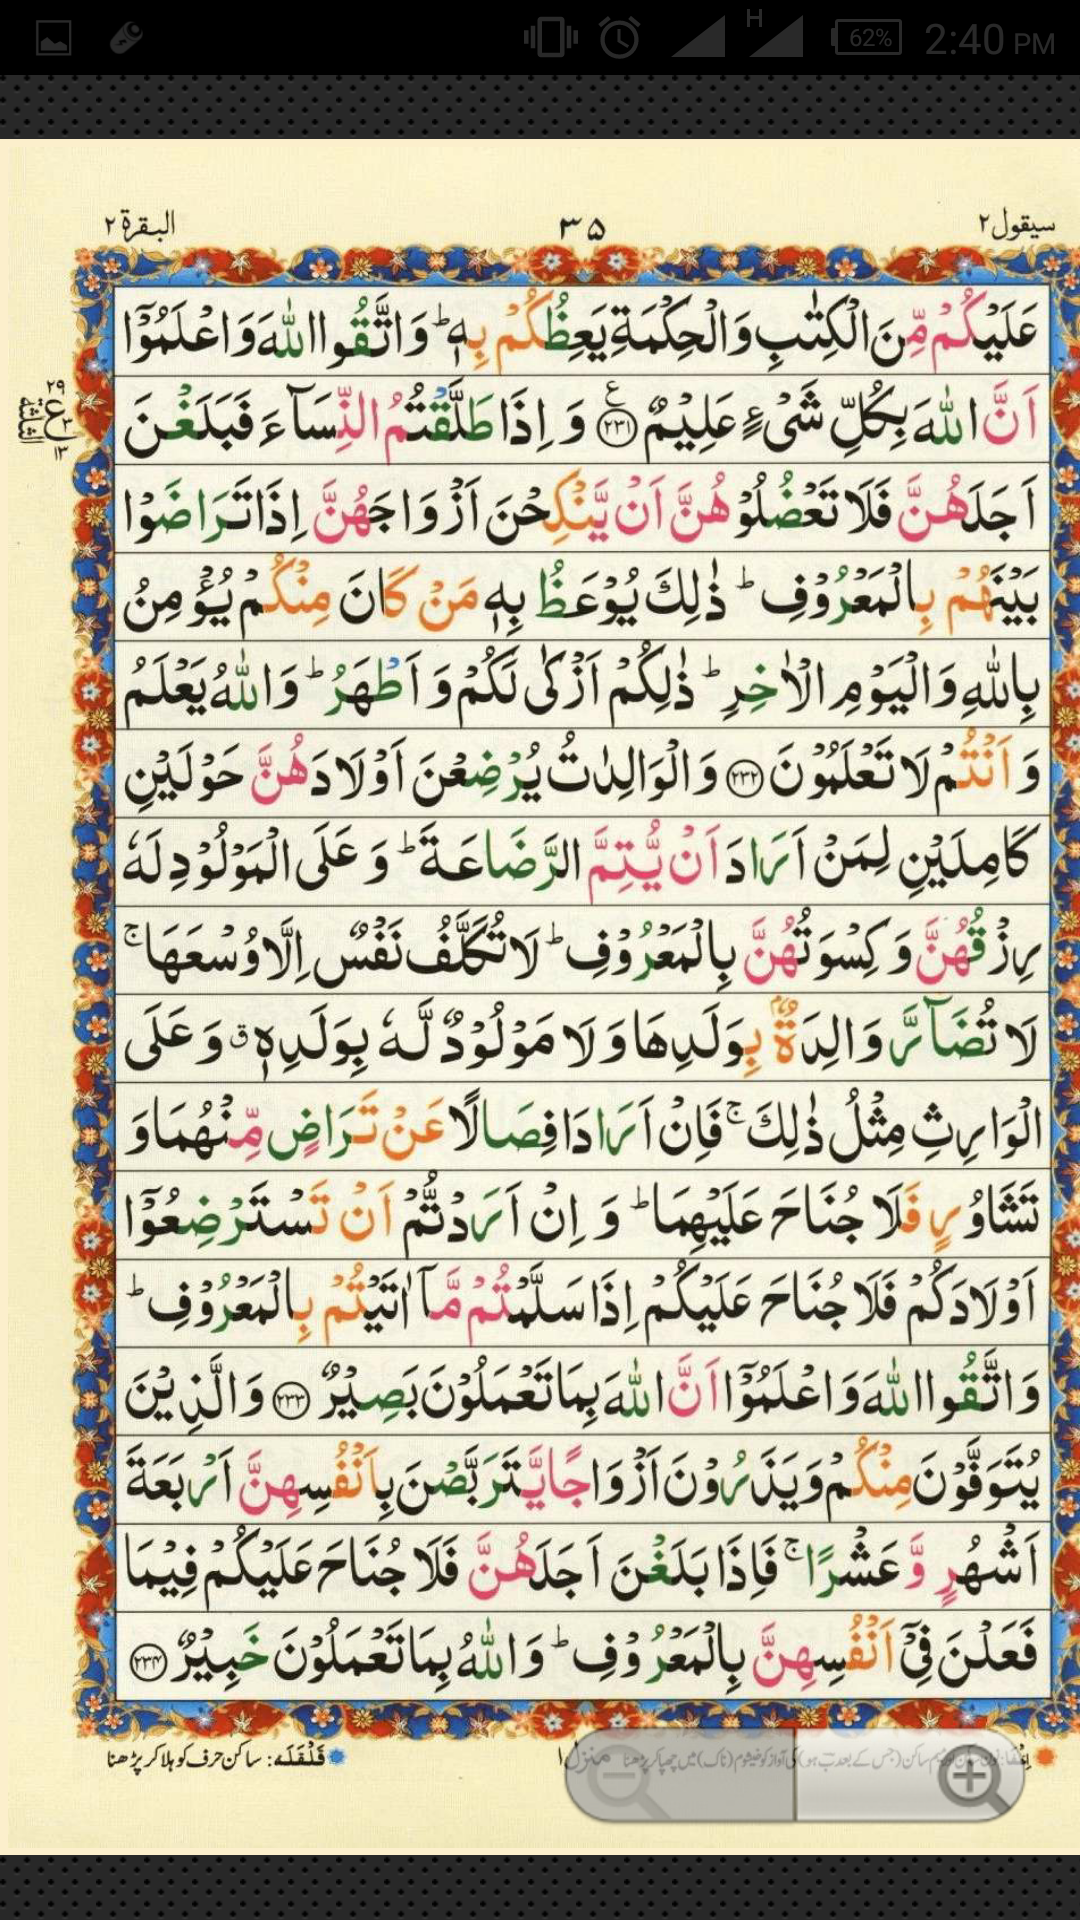 H 62% 2:40 PM
سیقول ۲ ۳۵ البقرة ۲
عَلَيْكُمْ مِّنَ الْكِتٰبِ وَالْحِكْمَةِ يَعِظُكُمْ بِهٖ ؕ وَاتَّقُوا اللّٰهَ وَاعْلَمُوْۤا
اَنَّ اللّٰهَ بِكُلِّ شَىْءٍ عَلِيْمٌ ﴿۲۳۱﴾ ع وَ اِذَا طَلَّقْتُمُ النِّسَآءَ فَبَلَغْنَ
۲۹
ع
۱۳
اَجَلَهُنَّ فَلَا تَعْضُلُوْهُنَّ اَنْ يَّنْكِحْنَ اَزْوَاجَهُنَّ اِذَا تَرَاضَوْا
بَيْنَهُمْ بِالْمَعْرُوْفِ ؕ ذٰلِكَ يُوْعَظُ بِهٖ مَنْ كَانَ مِنْكُمْ يُؤْمِنُ
بِاللّٰهِ وَالْيَوْمِ الْاٰخِرِ ؕ ذٰلِكُمْ اَزْكٰى لَكُمْ وَ اَطْهَرُ ؕ وَاللّٰهُ يَعْلَمُ
وَ اَنْتُمْ لَا تَعْلَمُوْنَ ﴿۲۳۲﴾ وَالْوَالِدٰتُ يُرْضِعْنَ اَوْلَادَهُنَّ حَوْلَيْنِ
كَامِلَيْنِ لِمَنْ اَرَادَ اَنْ يُّتِمَّ الرَّضَاعَةَ ؕ وَ عَلَى الْمَوْلُوْدِ لَهٗ
رِزْقُهُنَّ وَ كِسْوَتُهُنَّ بِالْمَعْرُوْفِ ؕ لَا تُكَلَّفُ نَفْسٌ اِلَّا وُسْعَهَا ۚ
لَا تُضَآرَّ وَالِدَةٌۢ بِوَلَدِهَا وَلَا مَوْلُوْدٌ لَّهٗ بِوَلَدِهٖ ق وَ عَلَى
الْوَارِثِ مِثْلُ ذٰلِكَ ۚ فَاِنْ اَرَادَا فِصَالًا عَنْ تَرَاضٍ مِّنْهُمَا وَ
تَشَاوُرٍ فَلَا جُنَاحَ عَلَيْهِمَا ؕ وَ اِنْ اَرَدْتُّمْ اَنْ تَسْتَرْضِعُوْۤا
اَوْلَادَكُمْ فَلَا جُنَاحَ عَلَيْكُمْ اِذَا سَلَّمْتُمْ مَّآ اٰتَيْتُمْ بِالْمَعْرُوْفِ ؕ
وَاتَّقُوا اللّٰهَ وَاعْلَمُوْۤا اَنَّ اللّٰهَ بِمَا تَعْمَلُوْنَ بَصِيْرٌ ﴿۲۳۳﴾ وَالَّذِيْنَ
يُتَوَفَّوْنَ مِنْكُمْ وَيَذَرُوْنَ اَزْوَاجًا يَّتَرَبَّصْنَ بِاَنْفُسِهِنَّ اَرْبَعَةَ
اَشْهُرٍ وَّعَشْرًا ۚ فَاِذَا بَلَغْنَ اَجَلَهُنَّ فَلَا جُنَاحَ عَلَيْكُمْ فِيْمَا
فَعَلْنَ فِىْۤ اَنْفُسِهِنَّ بِالْمَعْرُوْفِ ؕ وَاللّٰهُ بِمَا تَعْمَلُوْنَ خَبِيْرٌ ﴿۲۳۴﴾
ساکن (جس کے بعد ب ہو) کی آواز کو خیشوم (ناک) میں چھپا کر پڑھنا منزل ۱ قَلْقَلَه: ساکن حرف کو ہلا کر پڑھنا